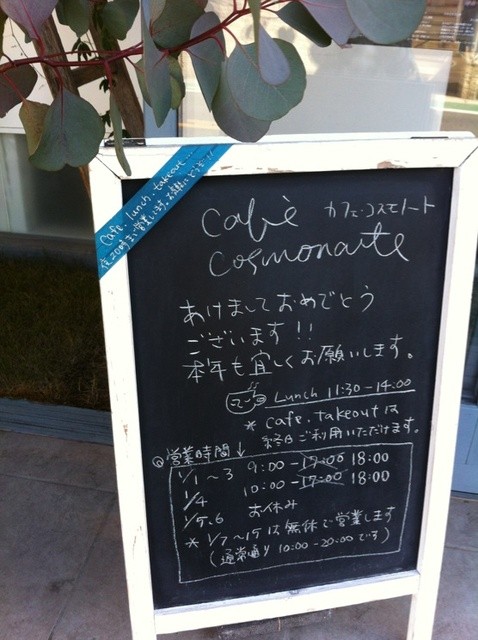 Cafe. lunch. takeout...
夜20時まで営業します。お気軽にどうぞ
Cafè カフェ・コスモノート
cosmonaute
あけましておめでとう
ございます!!
本年も宜しくお願いします。
Lunch 11:30-14:00
* cafe. takeoutは
終日ご利用いただけます。
営業時間↓
1/1~3 9:00-17:00 18:00
1/4 10:00-17:00 18:00
1/5.6 お休み
* 1/7~15は無休で営業します
(通常通り 10:00-20:00です)